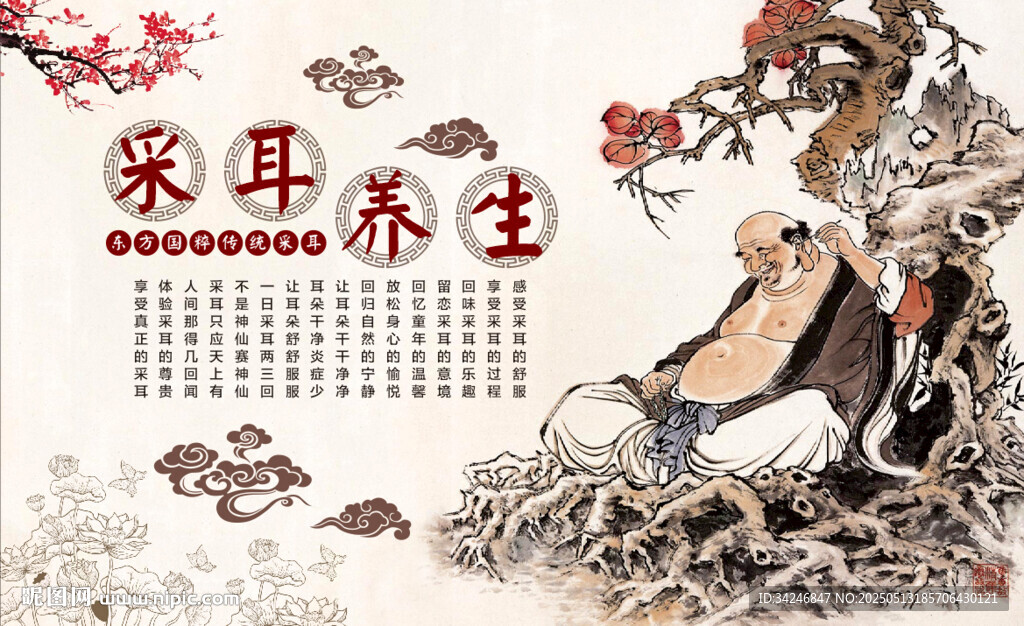 采耳养生
东方国粹传统采耳
感受采耳的舒服
享受采耳的过程
回味采耳的乐趣
留恋采耳的意境
回忆童年的温馨
放松身心的愉悦
回归自然的宁静
让耳朵干干净净
耳朵干净炎症少
让耳朵舒舒服服
一日采耳两三回
不是神仙赛神仙
采耳只应天上有
人间那得几回闻
体验采耳的尊贵
享受真正的采耳
昵图网 www.nipic.com
ID:34246847 NO:20250513185706430121